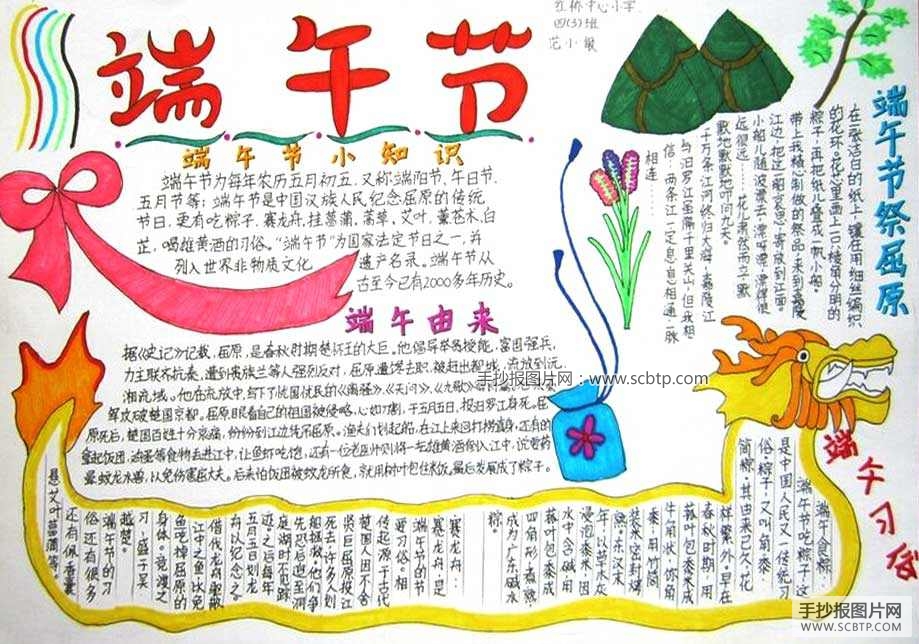 红桥中心小学
四(3)班
范小敏
端午节
端午节小知识
端午节为每年农历五月初五,又称端阳节、午日节、
五月节等;端午节是中国汉族人民纪念屈原的传统
节日,更有吃粽子,赛龙舟,挂菖蒲,蒿草,艾叶,薰苍术,白
芷,喝雄黄酒的习俗。"端午节"为国家法定节日之一,并
列入世界非物质文化遗产名录。端午节从
古至今已有2000多年历史。
端午由来
据《史记》记载,屈原,是春秋时期楚怀王的大臣。他倡导举贤授能,富国强兵,
力主联齐抗秦,遭到贵族
人强烈反对,屈原遭馋去职,被赶出都城,流放到沅、
湘流域。他在流放中,写下了忧国忧民的《离骚》、《天问》、《九歌》
军攻破楚国京都。屈原眼看自己的祖国被侵略,心如刀割,于五月五日,投汨罗江身死。屈
原死后,楚国百姓十分哀痛,纷纷到江边凭吊屈原。渔夫们划起船,在江上来回打捞真身,还有的
拿起饭团、
蛋等食物丢进江中,让鱼虾吃饱,还有一位老医师则将一坛雄黄酒倒入江中,说要药
晕蛟龙水兽,以免伤害屈大夫。后来怕饭团被蛟龙所食,就用树叶包住米饭,最后发展成了粽子。
手抄报图片网:www.scbtp.com
端午节祭屈原
在一张洁白的纸上,镶在用细丝编织
的花环。花心里画上一只棱角分明的
粽子,再把纸儿叠成一帆小船。
带上我精心制做的祭品,来到嘉陵
江边,把这船哀思,寄放到江面。
小船儿随波漂去,漂呀漂,漂得很
远很远……花儿肃然而立,默
默地默默地叩问苍天。
千万条江河终归大海,嘉陵江
与汨罗江虽隔千里关山,但我相
信,两条江一定息息相通一脉
相连……
端午习俗
端午食粽:
端午节吃粽子,这
是中国人民又一传统习
俗。粽子,又叫"角黍"、"
筒粽"。其由来已久,花
样繁多。早在
春秋时期,用
菰叶包黍米成
牛角状,称"角
黍";用竹筒
装米密封烤
熟。东汉末
年,以草木灰
水浸泡黍米,因
水中含碱,用
菰叶包黍米成
四角形,煮熟,
成为广东碱水
粽。
赛龙舟:
赛龙舟,是
端午节的主
要习俗。相
传起源于古代
楚国人因不舍
贤臣屈原投江
死去,许多人划
船追赶拯救。他们争
先恐后,追至洞
庭湖时不见踪
迹。之后每年
五月五日划龙
舟以纪念之。
借划龙舟驱散
江中之鱼,以免
鱼吃掉屈原的
身体。竞渡之
习,盛于吴、
越、楚。
端午节的习
俗还有很多,
还有佩香囊
悬艾叶菖蒲等。
手抄报图片网
WWW.SCBTP.COM